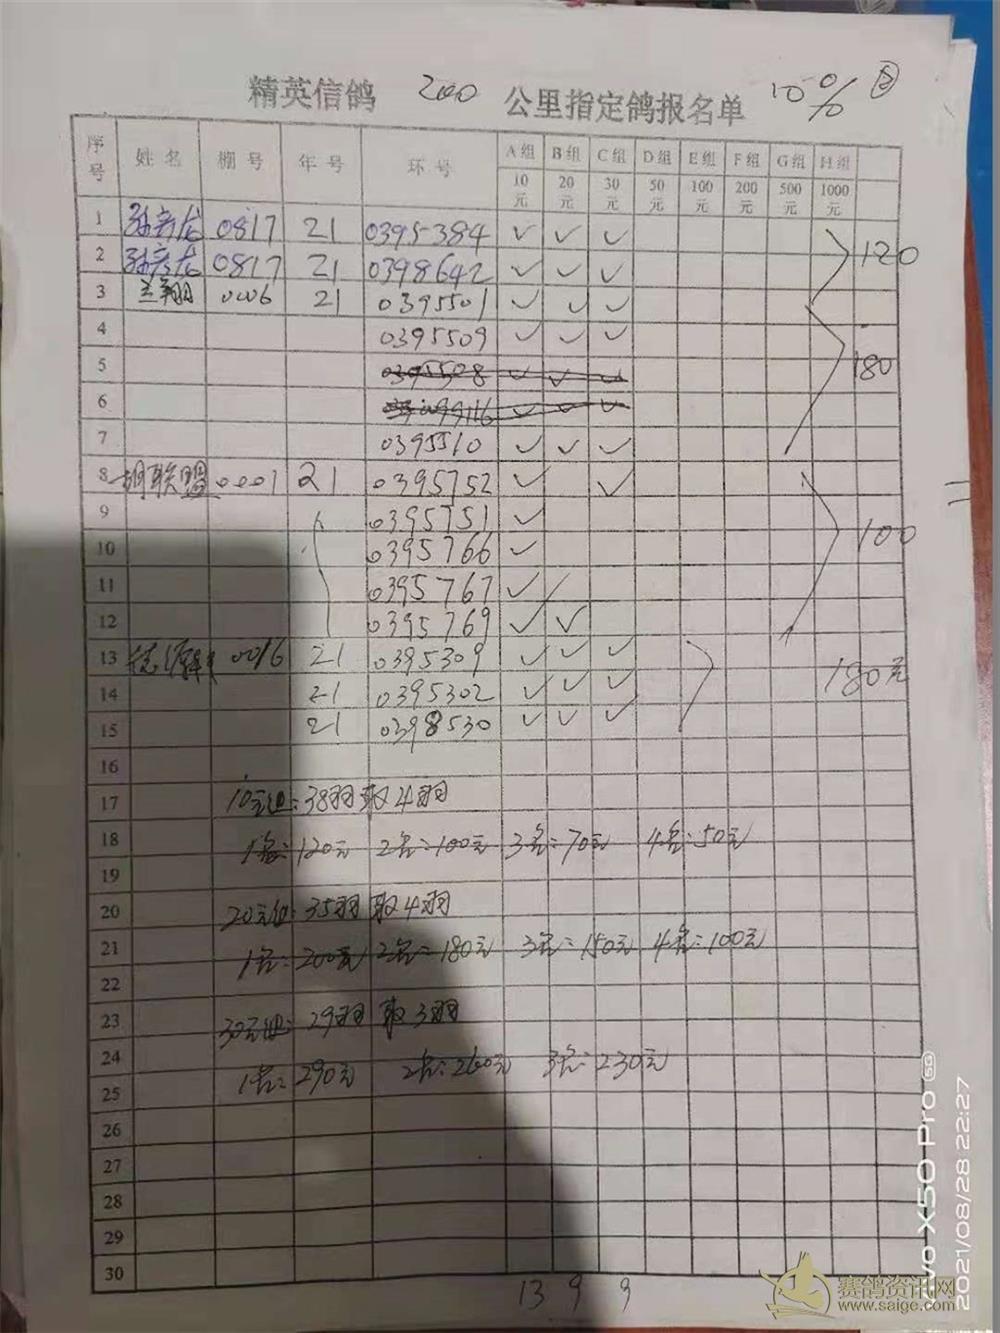 精英信鸽 200 公里指定鸽报名单 10%
序号 姓名 棚号 年号 环号 A组 B组 C组 D组 E组 F组 G组 H组
10元 20元 30元 50元 100元 200元 500元 1000元
1 孙彦龙 0817 21 0395384 ✓ ✓ ✓ 120
2 孙彦龙 0817 21 0398642 ✓ ✓ ✓
3 兰翔 0006 21 0395501 ✓ ✓ ✓
4 0395509 ✓ ✓ ✓
5 0395508 ✓ ✓ ✓ 180
6 ✓ ✓ ✓
7 0395510 ✓ ✓ ✓
8 胡联盟 0001 21 0395752 ✓ ✓
9 0395751 ✓
10 0395766 ✓ 100
11 0395767 ✓
12 0395769 ✓ ✓
13 0016 21 0395309 ✓ ✓ ✓
14 21 0395302 ✓ ✓ ✓ 180元
15 21 0398530 ✓ ✓ ✓
16
17 10元组:38羽取4羽
18 1名:120元 2名:100元 3名:70元 4名:50元
19
20 20元组:35羽取4羽
21 1名:200元 2名:180元 3名:150元 4名:100元
22
23 30元组:29羽 取3羽
24
25 1名:290元 2名:260元 3名:230元
26
27
28
29
30
13 9 9
vivo X50 Pro 5G
2021/08/28 22:27
赛鸽资讯网
www.saige.com